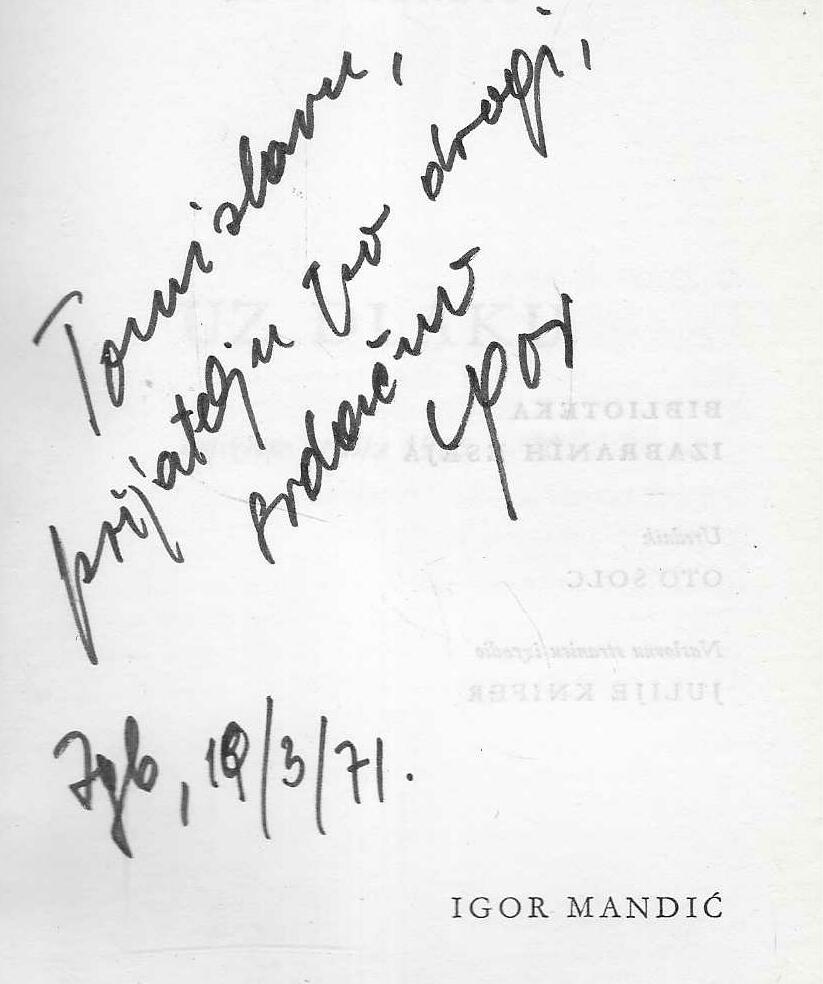 Tomislavu,
prijatelju po drogi,
srdačno
Igor
Zgb, 19/3/71.
UZ DLAKU
BIBLIOTEKA
IZABRANIH ESEJA
Urednik
OTO ŠOLC
Naslovnu stranicu izradio
JULIJE KNIFER
IGOR MANDIĆ